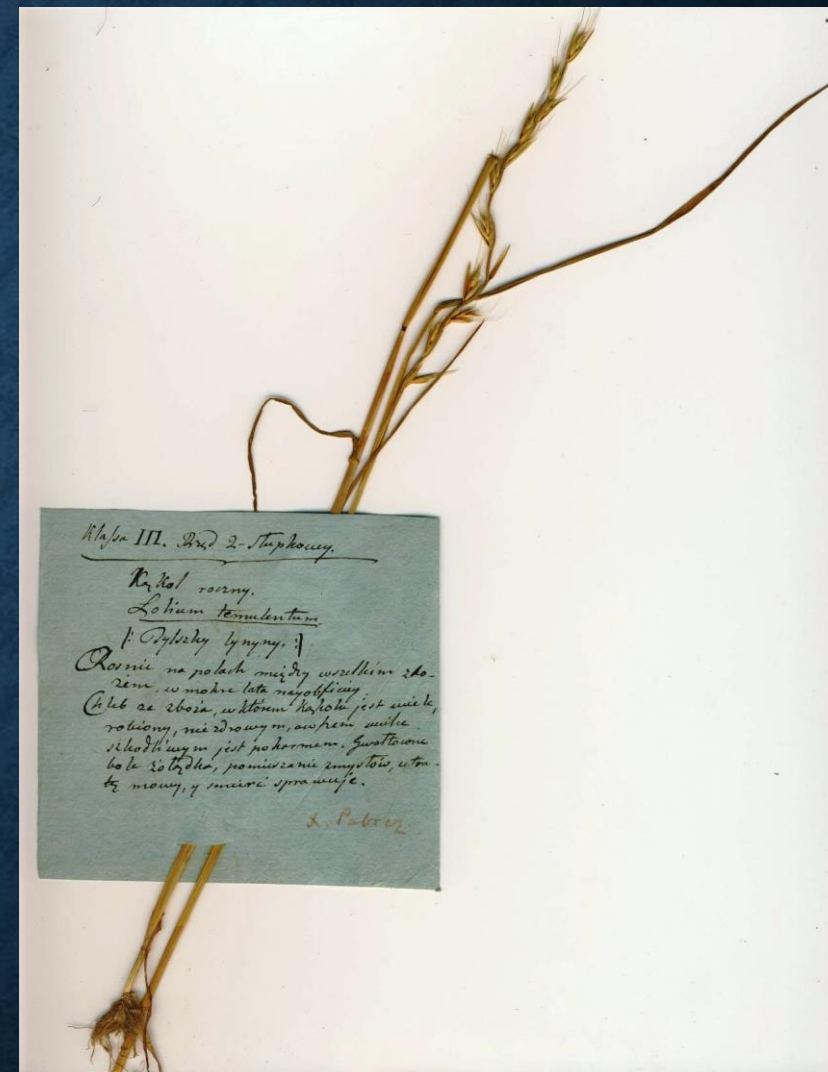 Klassa III. Rząd 2-słupkowy.
Kąkol roczny.
Lolium temulentum
Rosnie na polach między wszelkim zbo-
żem, w mokre lata nayobficiey.
Chleb ze zboża, w którem Kąkolu jest wiele,
robiony, niezdrowym, owszem wielce
szkodliwym jest pokarmem. Gwałtowne
bole żołądka, pomieszanie zmysłów, utra-
tę mowy, y smierć sprawuje.
X. Pabrez